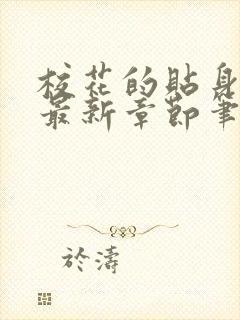 校花的貼身
最新章節筆
於濤